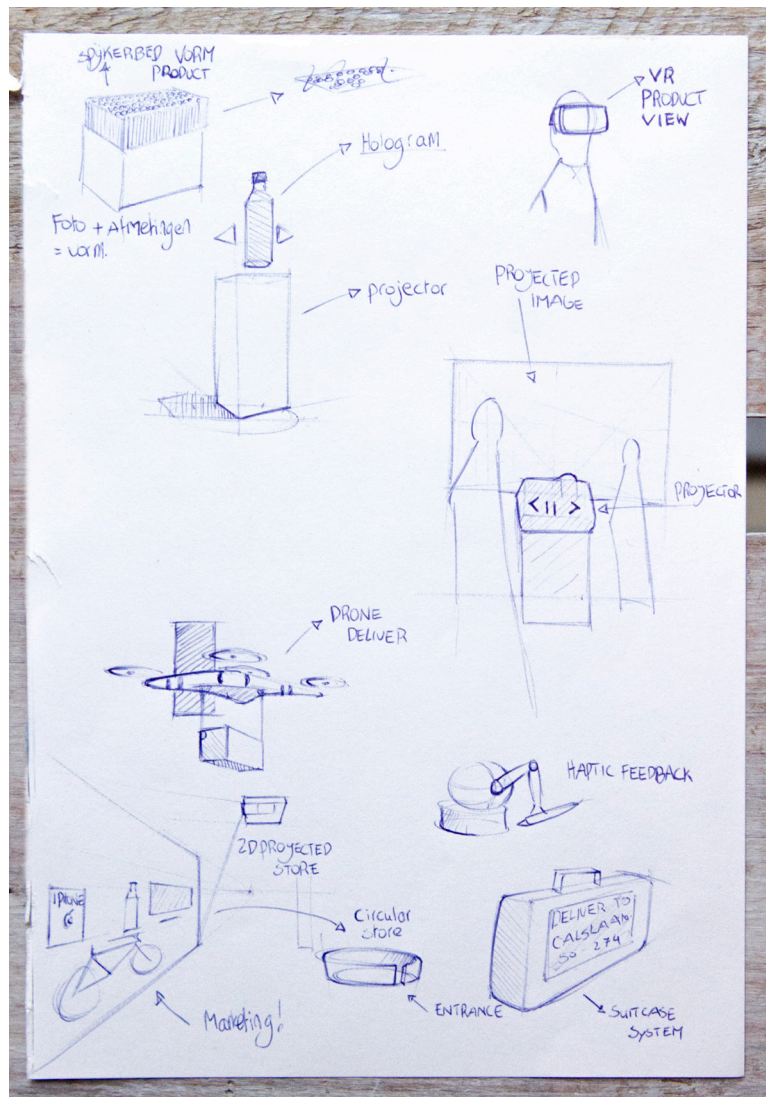 SPIJKERBED VORM
PRODUCT
VR
PRODUCT
VIEW
Hologram
Foto + Afmetingen
= vorm.
projector
PROJECTED
IMAGE
< || >
PROJECTOR
DRONE
DELIVER
HAPTIC FEEDBACK
2D PROJECTED
STORE
IPHONE
6
Circular
store
DELIVER TO
CALSLAAN
50 - 274
ENTRANCE
SUITCASE
SYSTEM
Marketing!